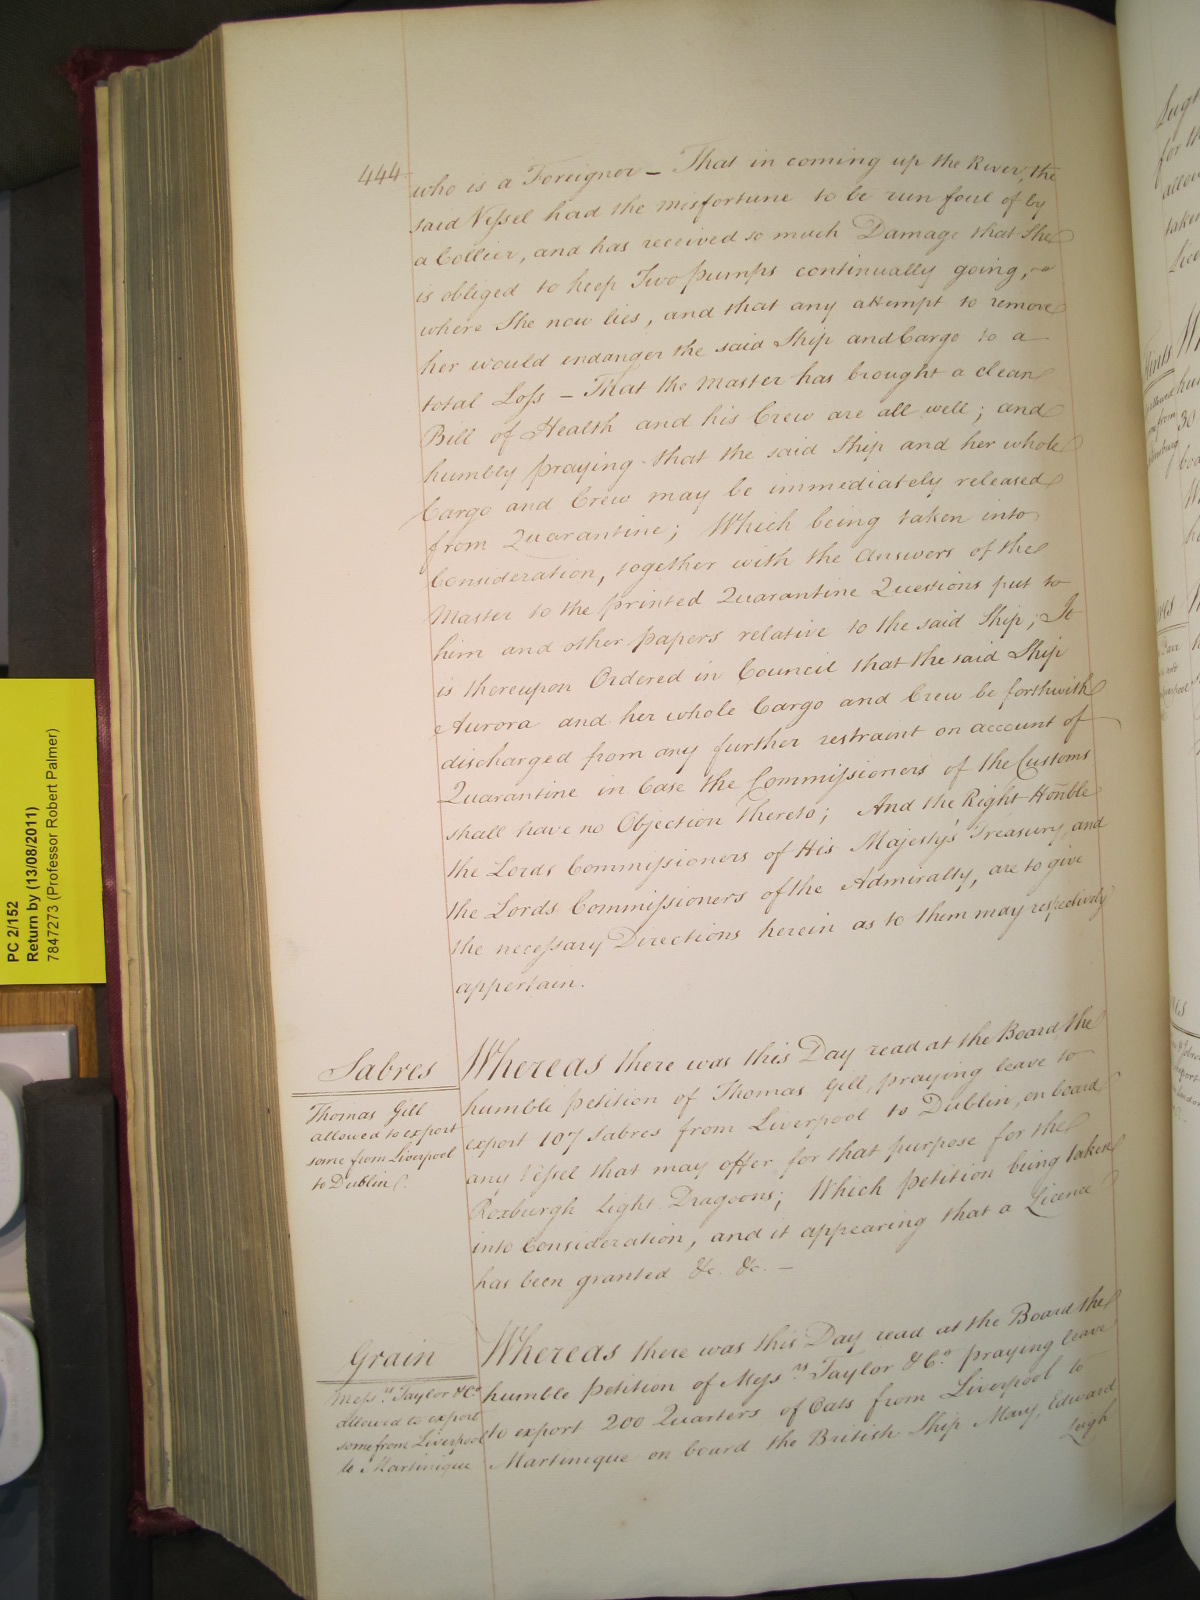 444
who is a Foreigner – That in coming up the River, the
said Vessel had the misfortune to be run foul of by
a Collier, and has received so much Damage that She
is obliged to keep Two pumps continually going,
where She now lies, and that any attempt to remove
her would endanger the said Ship and Cargo to a
total Loss – That the Master has brought a clean
Bill of Health and his Crew are all well; and
humbly praying that the said Ship and her whole
Cargo and Crew may be immediately released
from Quarantine; Which being taken into
Consideration, together with the Answers of the
Master to the printed Quarantine Questions put to
him and other papers relative to the said Ship; It
is thereupon Ordered in Council that the said Ship
Aurora and her whole Cargo and Crew be forthwith
discharged from any further restraint on account of
Quarantine in Case the Commissioners of the Customs
shall have no Objection Thereto; And the Right Honble
the Lords Commissioners of His Majesty's Treasury, and
the Lords Commissioners of the Admiralty, are to give
the necessary Directions herein as to them may respectively
appertain.
Sabres
Thomas Gill
allowed to export
some from Liverpool
to Dublin
Whereas there was this Day read at the Board the
humble petition of Thomas Gill, praying leave to
export 107 Sabres from Liverpool to Dublin, on board
any Vessel that may offer for that purpose for the
Roxburgh Light Dragoons; Which petition being taken
into Consideration, and it appearing that a Licence
has been granted &c. &c. –
Grain
Messrs Taylor & Co
allowed to export
some from Liverpool
to Martinique
Whereas there was this Day read at the Board the
humble petition of Messrs Taylor & Co. praying leave
to export 200 Quarters of Oats from Liverpool to
Martinique on board the British Ship Mary, Edward
Leigh
PC 2/152
Return by (13/08/2011)
7847273 (Professor Robert Palmer)